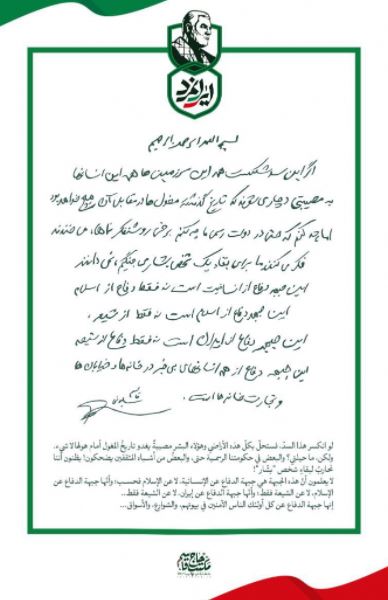 ایرانمرد
بسم الله الرحمن الرحیم
اگر این سد شکست همه این سرزمین‌ها همه این انسانها
به مصیبتی دچار می‌شوند که تاریخ گذشته مغول‌ها در مقابل آن هیچ خواهد بود
اما چه کنم که حتی در دولت رسمی ما چه کنم برخی روشنفکر نماها، می‌خندند
فکر می‌کنند ما برای بقاء یک شخص بشار می‌جنگیم، نمی‌دانند
این جبهه دفاع از انسانیت است نه فقط دفاع از اسلام
این جبهه دفاع از اسلام است نه فقط از شیعه،
این جبهه دفاع از ایران است نه فقط دفاع از شیعه
این جبهه دفاع از همه انسانهای بی‌خبر در خانه‌ها و خیابان‌ها
و تجارت‌خانه‌ها است.
لو انكسر هذا السدّ، فستحلّ بكلّ هذه الأراضي وهؤلاء البشر مصيبةٌ يغدو تاريخُ المغول أمام هولها لا شيء.
ولكن، ما حيلتي؟ والبعض في حكومتنا الرسمية حتى، والبعضُ من أشباه المثقفين يضحكون! يظنون أننا
نحاربُ لبقاءِ شخص "بشّار"!
لا يعلمون أنّ هذه الجبهة هي جبهة الدفاع عن الإنسانية، لا عن الإسلام فحسب؛ وأنّها جبهة الدفاع عن
الإسلام، لا عن الشيعة فقط؛ وأنّها جبهة الدفاع عن إيران، لا عن الشيعة فقط...
إنها جبهة الدفاع عن كل أولئك الناس الآمنين في بيوتهم، والشوارع، والأسواق...
مکتب حاج قاسم